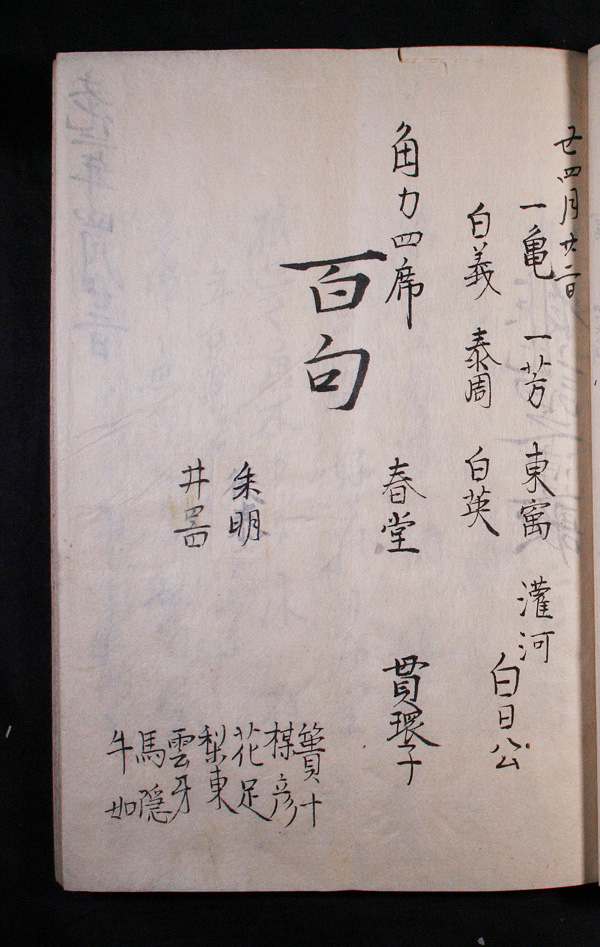 廿四月廿二日
一亀 一芳 東寓 灌河
白義 泰周 白英 白日公
角力四席 春堂 貫環子
百句
朱明
井畾
簣十
楳彦
花足
梨東
雲牙
馬隠
牛如